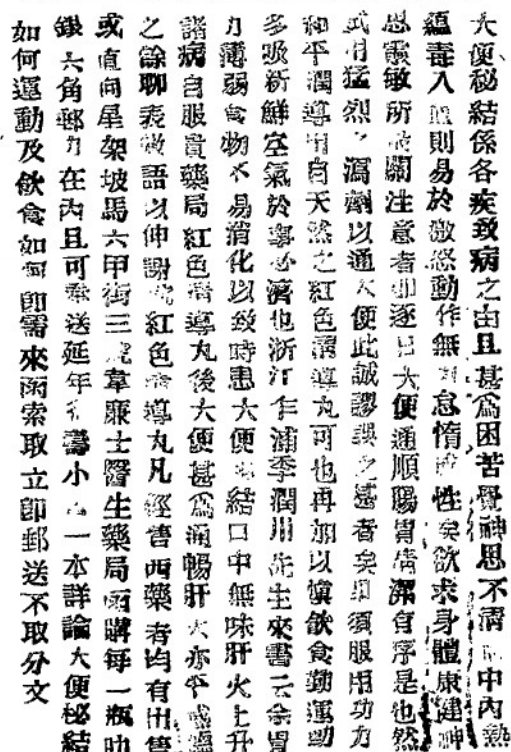 大便秘結係各疾致病之由且甚爲困苦覺神思不清中內熱
蘊毒入則易於激怒動作無怠惰性矣欲求身體康健神
思靈敏所關注意者卽逐日大便通順腸胃清潔有序是也然
或用猛烈之瀉劑以通大便此誠謬誤之甚者矣須服用功力
和平潤導自天然之紅色清導丸可也再加以愼飲食勤運動
多吸新鮮空氣於事必濟也浙江乍浦季潤川先生來書云余胃
力薄弱食物不易消化以致時患大便結口中無味肝火上升
諸病自服貴藥局紅色清導丸後大便甚爲通暢肝火亦平感激
之餘聊表數語以伸謝紅色清導丸凡經售西藥者均有出售
或直向星架坡馬六甲街三韋廉士醫生藥局函購每一瓶
銀六角郵力在內且可送延年壽小一本詳論大便秘結
如何運動及飲食如何卽需來函索取立卽郵送不取分文